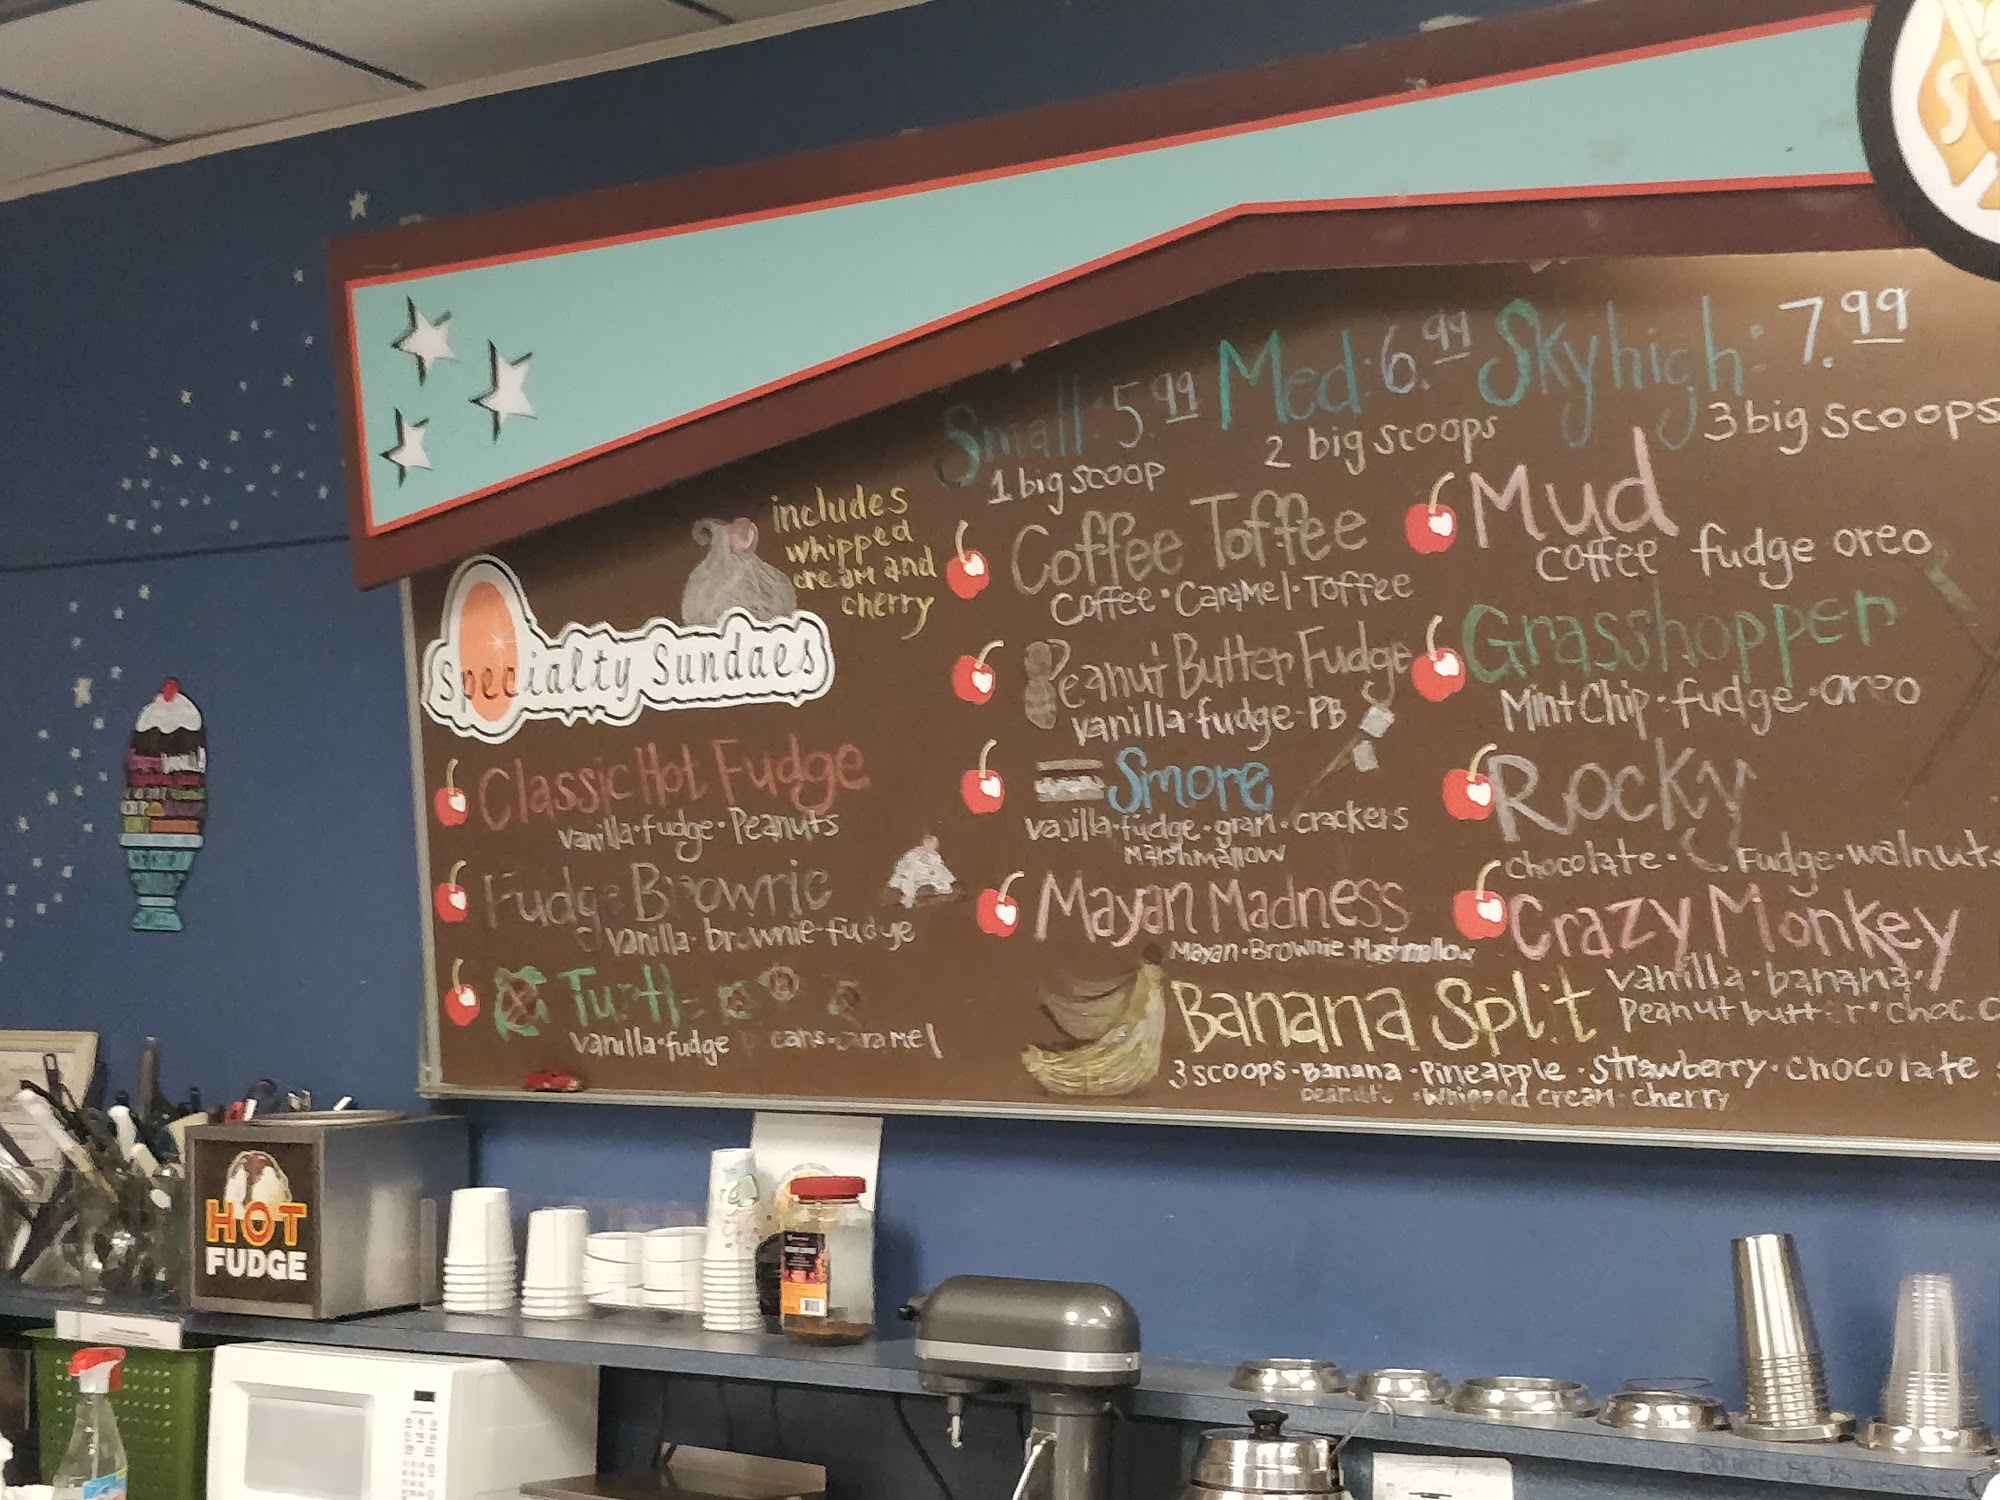 Small: 5.99 Med: 6.99 Skyhigh: 7.99
1 big scoop 2 big scoops 3 big scoops
includes
whipped
cream and
cherry
Specialty Sundaes
Classic Hot Fudge
vanilla · fudge · Peanuts
Fudge Brownie
vanilla · brownie · fudge
Turtle
vanilla · fudge caramel
Coffee Toffee
Coffee · Caramel · Toffee
Peanut Butter Fudge
vanilla · fudge · PB
Smore
vanilla · fudge · gram · crackers
Marshmallow
Mayan Madness
Mayan · Brownie · Mashmallow
Mud
coffee fudge oreo
Grasshopper
Mint Chip · fudge · oreo
Rocky
chocolate · Fudge · walnuts
Crazy Monkey
vanilla · banana ·
Peanut butter · choc.
Banana Split
3 scoops · Banana · Pineapple · Strawberry · Chocolate
peanuts · whipped cream · cherry
HOT
FUDGE